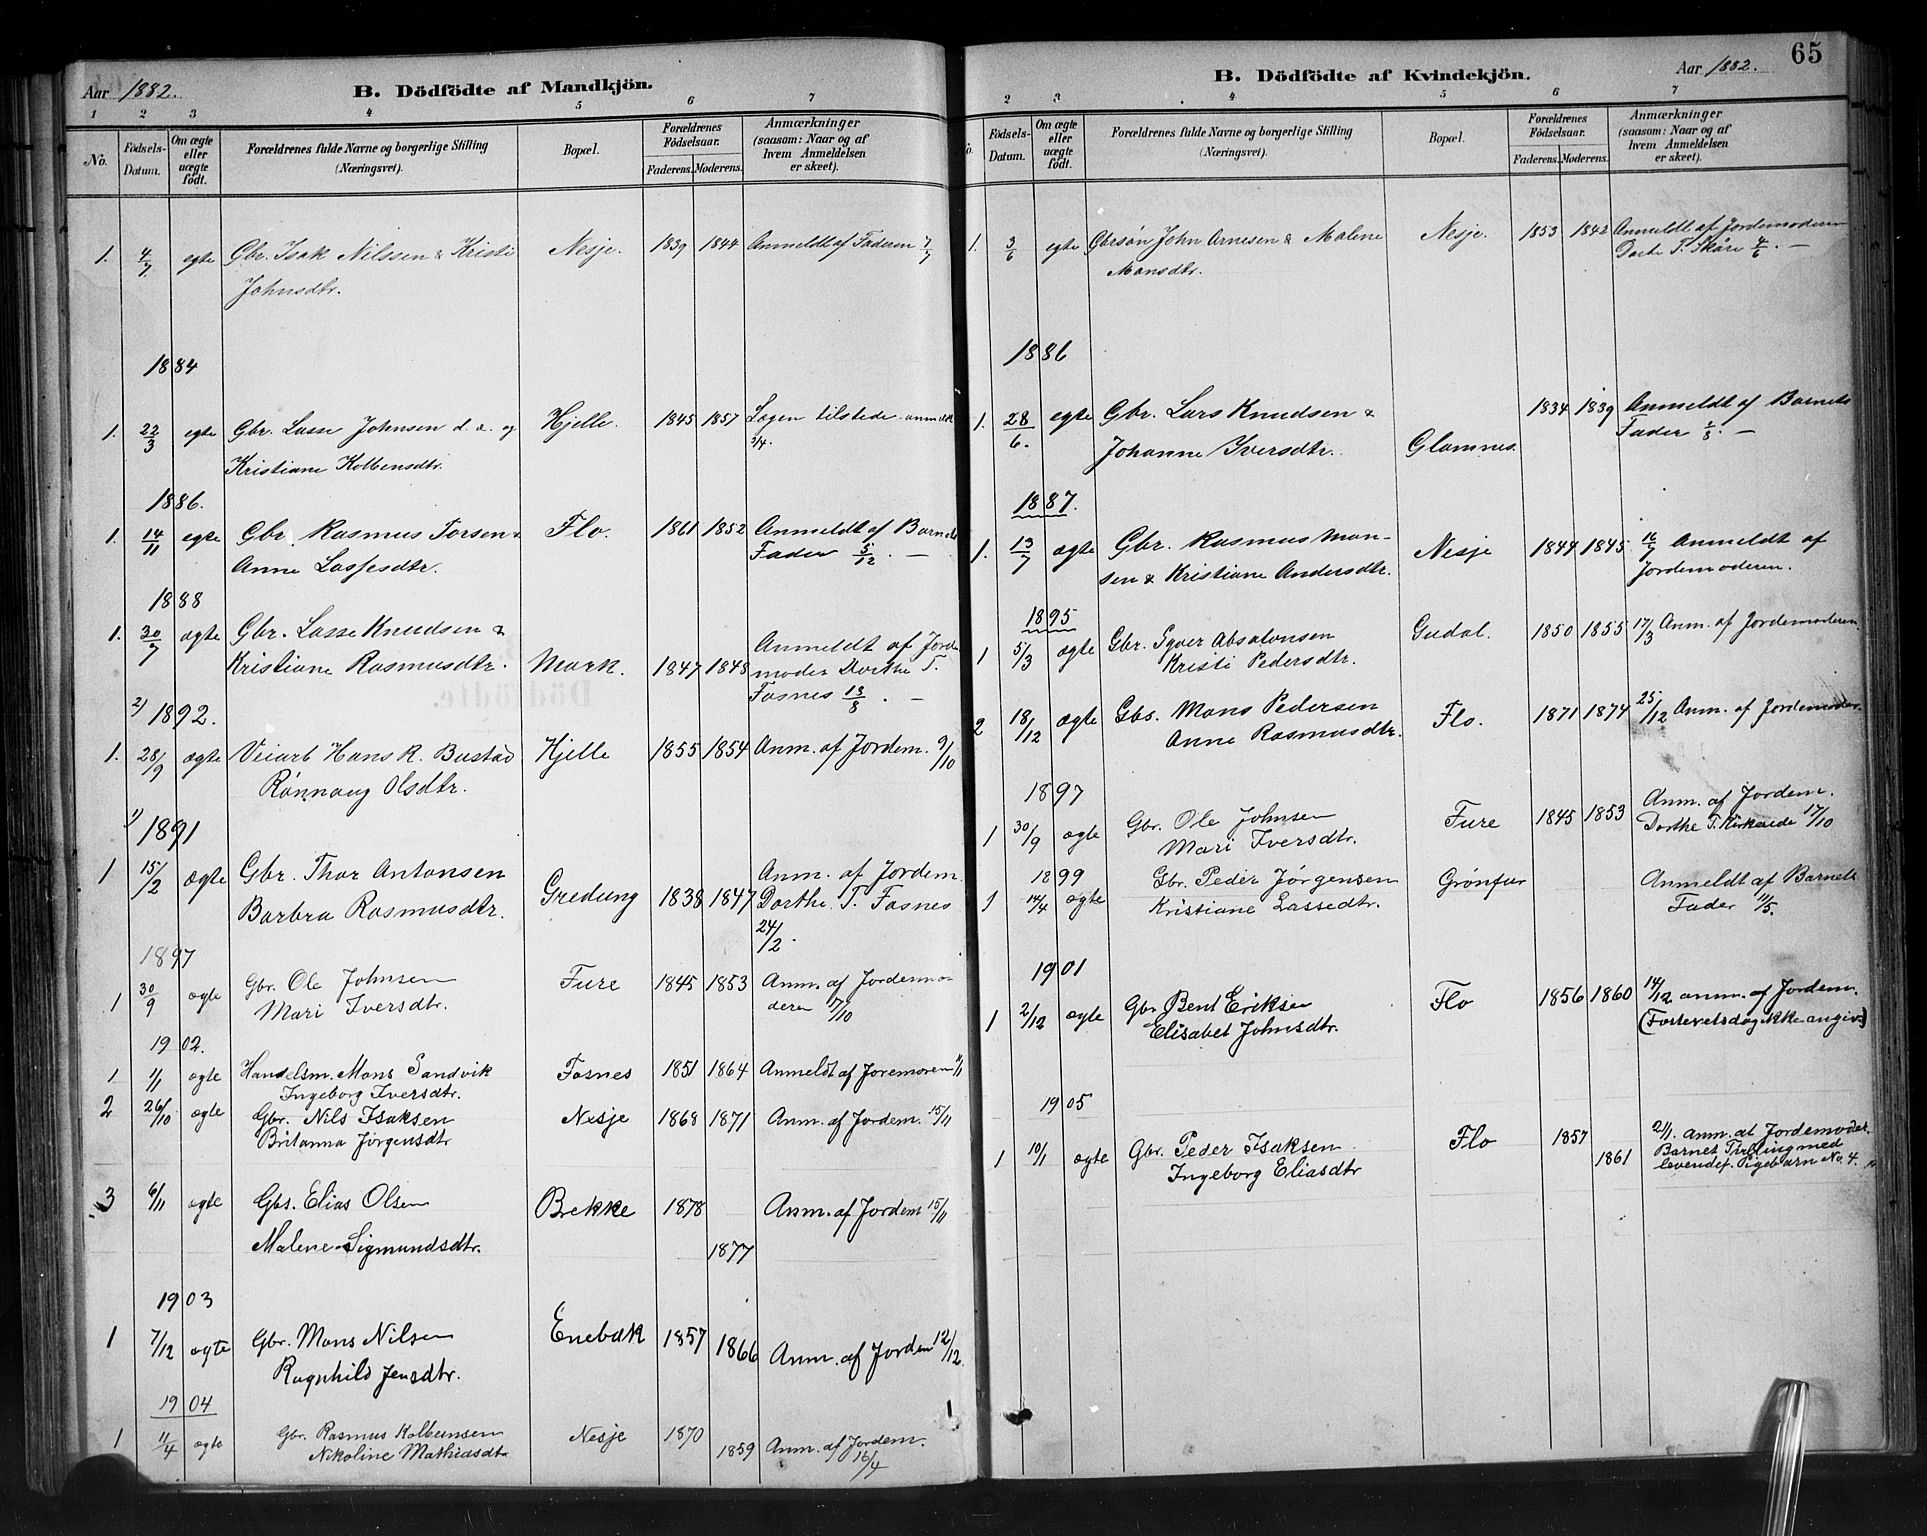 Aar 1882.
B. Dödfödte af Mandkjön.
1 2 3 4 5 6 7
No.
Födsels-Datum.
Om ægte eller uægte födt.
Forældrenes fulde Navne og borgerlige Stilling (Næringsvei).
Bopæl.
Forældrenes Födselsaar.
Faderens. Moderens.
Anmærkninger (saasom: Naar og af hvem Anmeldelsen er skeet).
1. 4/7 egte Gbr. Isak Nilssen & Kristi Nesje. 1839 1844 Anmeldt af Faderen 7/7
Johnsdtr.
1884
1. 22/3 egte Gbr. Lasse Johnsen d. æ. og Hjelle. 1845 1857 Lægen tilstede. anmeldt
Kristiane Kolbensdtr. 3/4.
1886.
1. 14/11 egte Gbr. Rasmus Torsen & Flo. 1861 1852 Anmeldt af Barnets
Anne Lassesdtr. Fader 5/12. —
1888
1. 30/7 ægte Gbr. Lasse Knudsen &
Kristiane Rasmusdtr. Mørk. 1847 1848 Anmeldt af Jorde
moder Dorthe T.
Fosnes 13/8. —
2) 1892.
1. 28/9 ægte Veiarb Hans R. Bustad Hjelle 1855 1854 Anm. af Jordem. 9/10
Rønnaug Olsdtr.
1) 1891
1 15/2 ægte Gbr. Thor Antonsen Gredung 1838 1847 Anm. af Jordem.
Barbra Rasmusdtr. Dorthe T. Fosnes
24/2.
1897
1 30/9 ægte Gbr. Ole Johnsen Fure 1845 1853 Anm. af Jordemo-
Mari Iversdtr. deren 17/10
1902.
1 1/1 ægte Handelsm. Mons Sandvik Fosnes 1851 1864 Anmeldt af Joremoren 1/1
Ingeborg Iversdtr.
2 26/10 ægte Gbr. Nils Isaksen Nesje 1868 1871 Anm. af Jordem. 15/11
Britanna Jörgensdtr
3 6/11 ægte Gbs. Elias Olsen Bekke 1878 Anm. af Jordem 15/11
Malene Sigmundsdtr. 1877
1903
1 7/12 ægte Gbr. Mons Nilsen Enebæk 1857 1866 Anm. af Jordem 12/12.
Ragnhild Jensdtr.
1904
1 11/4 ægte Gbr. Rasmus Kolbeinsen Nesje 1870 1859 Anm. af Jordem.
Nikoline Mathiasdtr 16/4
65
B. Dödfödte af Kvindekjön.
Aar 1882.
2 3 4 5 6 7
Födsels-Datum.
Om ægte eller uægte födt.
Forældrenes fulde Navne og borgerlige Stilling (Næringsvei).
Bopæl.
Forældrenes Födselsaar.
Faderens. Moderens.
Anmærkninger (saasom: Naar og af hvem Anmeldelsen er skeet).
1. 3/6 egte Gbrsøn John Arnesen & Malene Nesje. 1853 1842 Anmeldt af Jordemoderen
Monsdtr. Dorte T. Skåre 4/6. —
1886
1. 28/6. egte Gbr. Lars Knudsen & 1834 1839 Anmeldt af Barnets
Johanne Iversdtr. Glomnes. Fader 1/8. —
1887.
1. 13/7 ægte Gbr. Rasmus Mon- Nesje 1844 1845 16/7 Anmeldt af
sen & Kristiane Andersdtr. Jordemoderen.
1895
1 5/3 ægte Gbr. Syver Absalonsen Gudal. 1850 1855 17/3 Anm. af Jordemoderen
Kristi Pedersdtr.
2 18/12 ægte Gbs. Mons Pedersen Flo. 1871 1874 25/12 Anm. af Jordemoder
Anne Rasmusdtr.
1897
1 30/9 ægte Gbr. Ole Johnsen Fure 1845 1853 Anm. af Jordem.
Mari Iversdtr. Dorthe T. 17/10
1899 Gbr. Peder Jørgensen Grønfur Anmeldt af Barnets
1 14/4 ægte Kristiane Lassedtr. Fader 11/5.
1901
1 2/12 ægte Gbr Bent Eriksen Flo 1856 1860 14/12 anm. af Jordem.
Elisabet Johnsdtr. (Fosterets dag ikke angiv.)
1905
1 10/1 ægte Gbr. Peder Isaksen Flo 1857 2/1. anm. af Jordemoder.
Ingeborg Eliasdtr 1861 Barnet Tvilling med
levendef. Pigebarn No. 4.